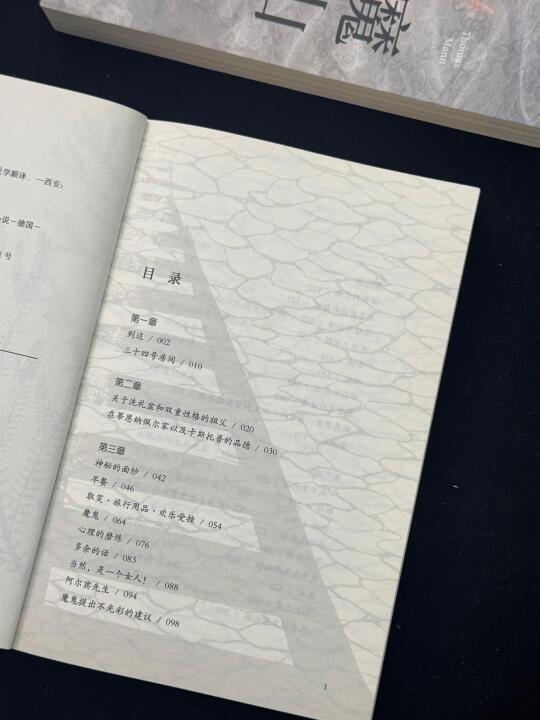 魔山
Thomas
Mann
学颖译. —西安:
说-德国-
号
目 录
第一章
到达 / 002
三十四号房间 / 010
第二章
关于洗礼盆和双重性格的祖父 / 020
在蒂恩纳佩尔家以及卡斯托普的品德 / 030
第三章
神秘的面纱 / 042
早餐 / 046
取笑·旅行用品·欢乐受挫 / 054
魔鬼 / 064
心理的磨炼 / 076
多余的话 / 083
当然，是一个女人！ / 088
阿尔宾先生 / 094
魔鬼提出不光彩的建议 / 098
1